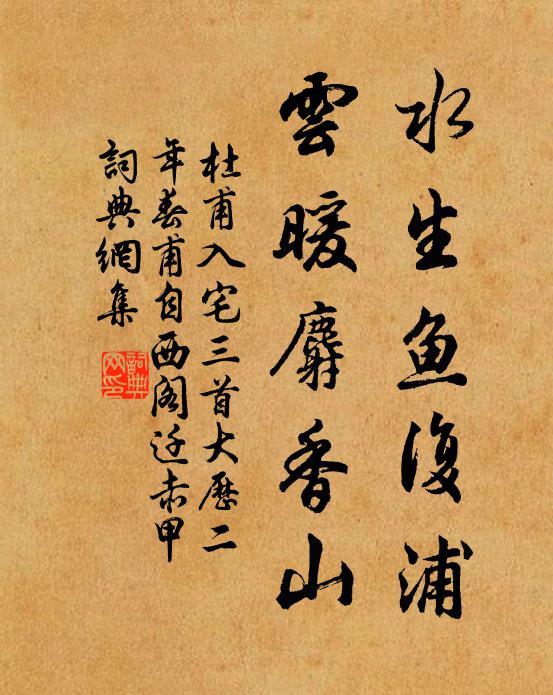 水生魚復浦
雲暖麝香山
杜甫入宅三首大歷二
年春甫自西阁迁赤甲
詞典網集
詞典
网印